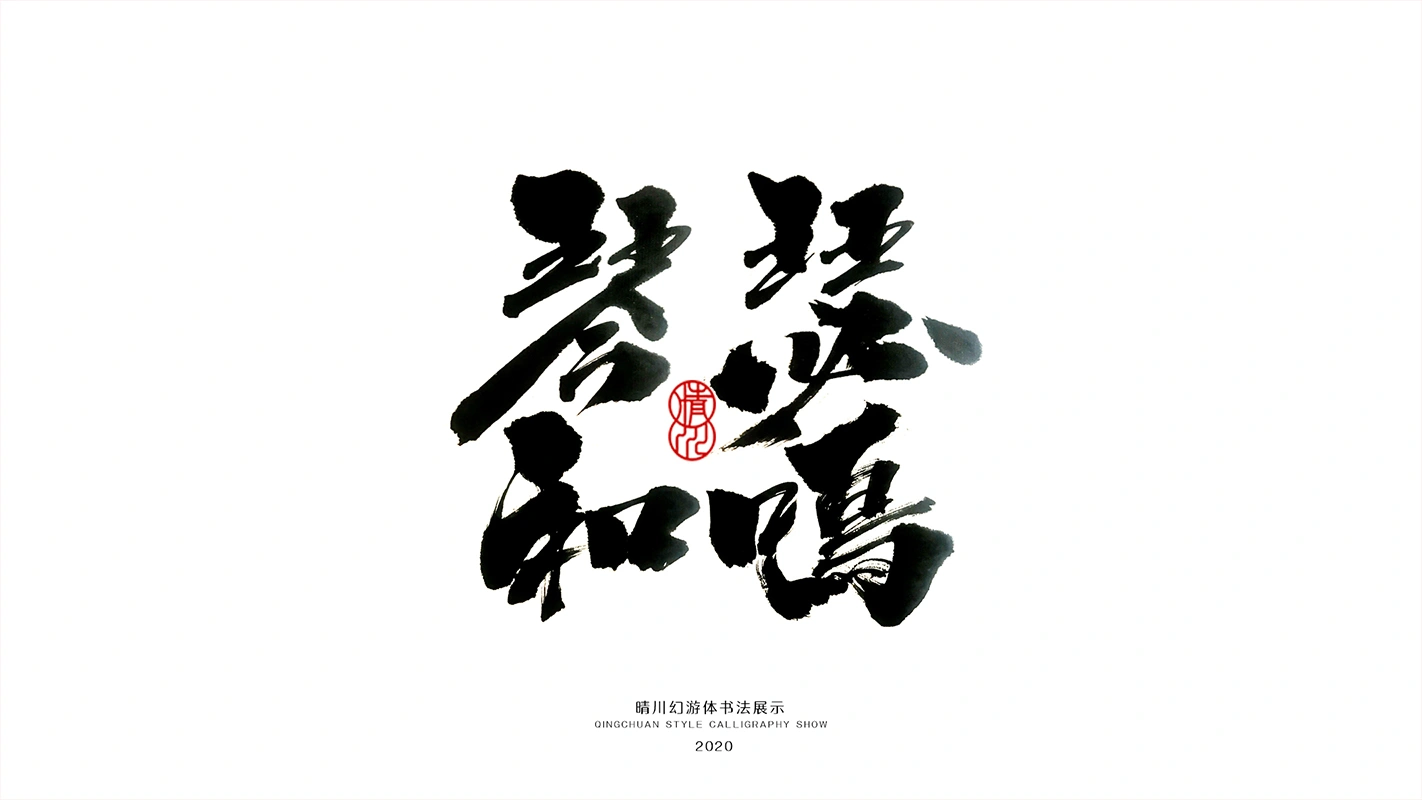 琴瑟
和鸣
晴川
晴川幻游体书法展示
QINGCHUAN STYLE CALLIGRAPHY SHOW
2020